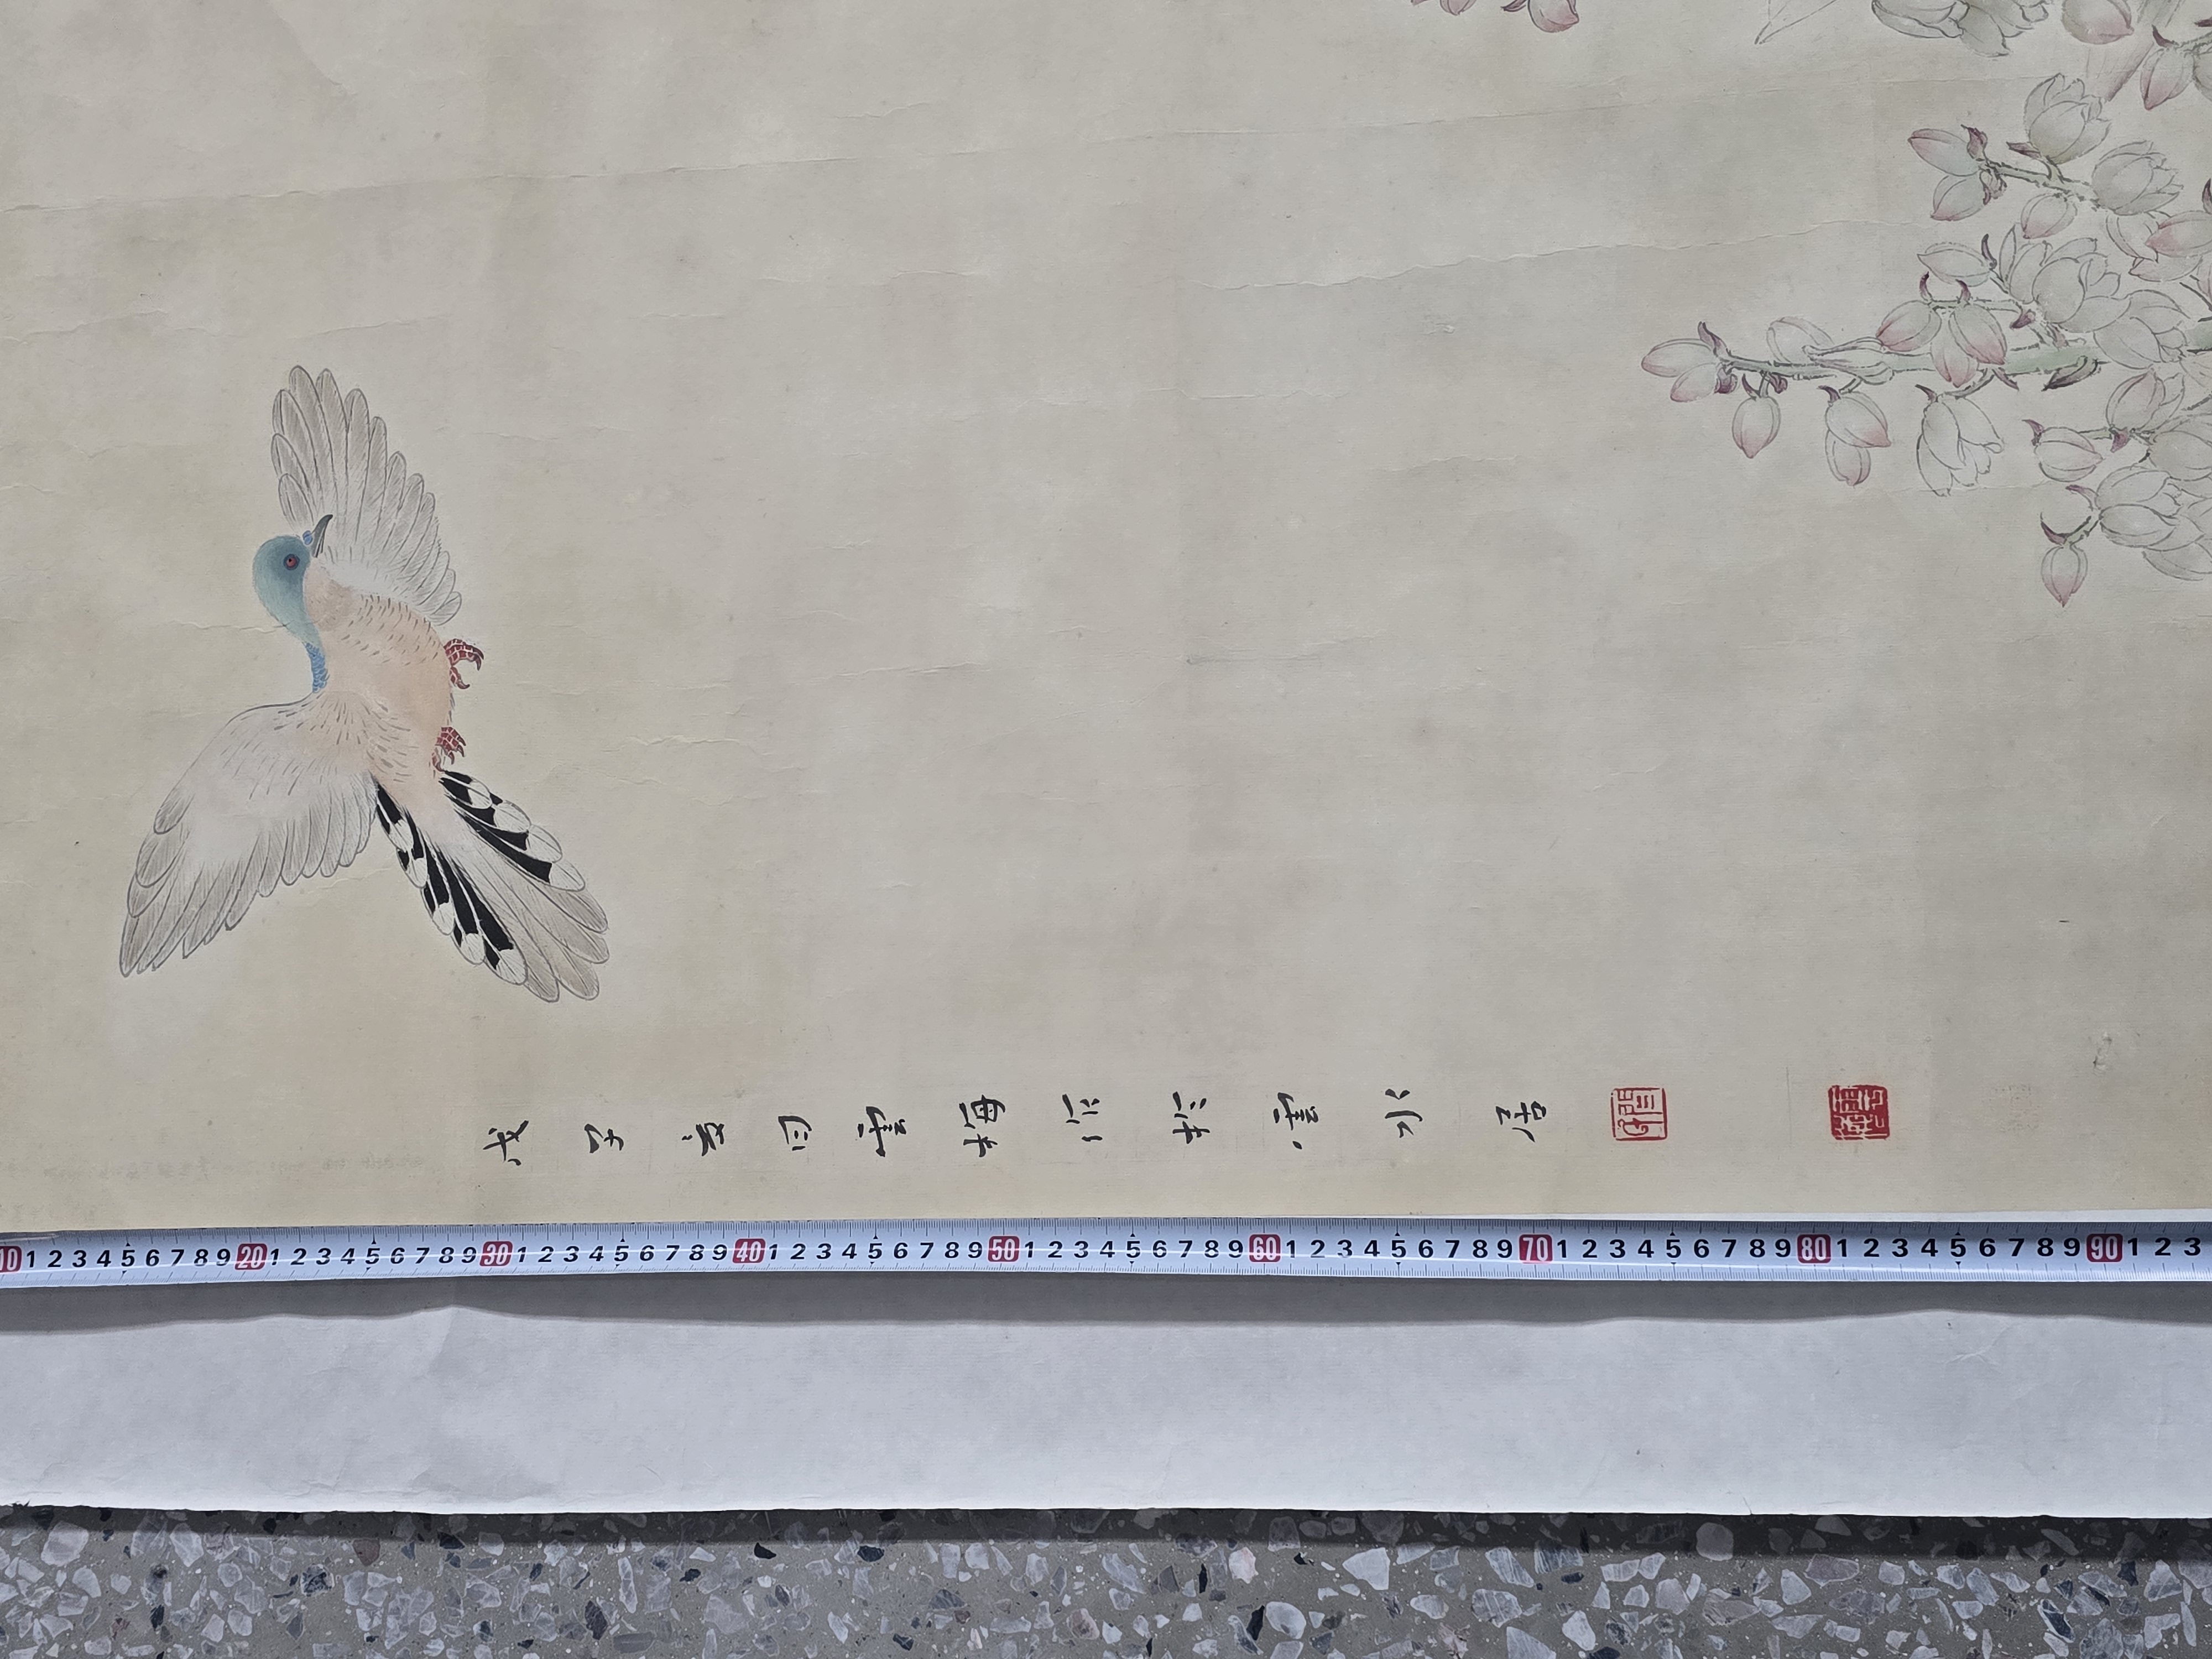 戊子月雪梅作於雲水居
10 1 2 3 4 5 6 7 8 9 20 1 2 3 4 5 6 7 8 9 30 1 2 3 4 5 6 7 8 9 40 1 2 3 4 5 6 7 8 9 50 1 2 3 4 5 6 7 8 9 60 1 2 3 4 5 6 7 8 9 70 1 2 3 4 5 6 7 8 9 80 1 2 3 4 5 6 7 8 9 90 1 2 3